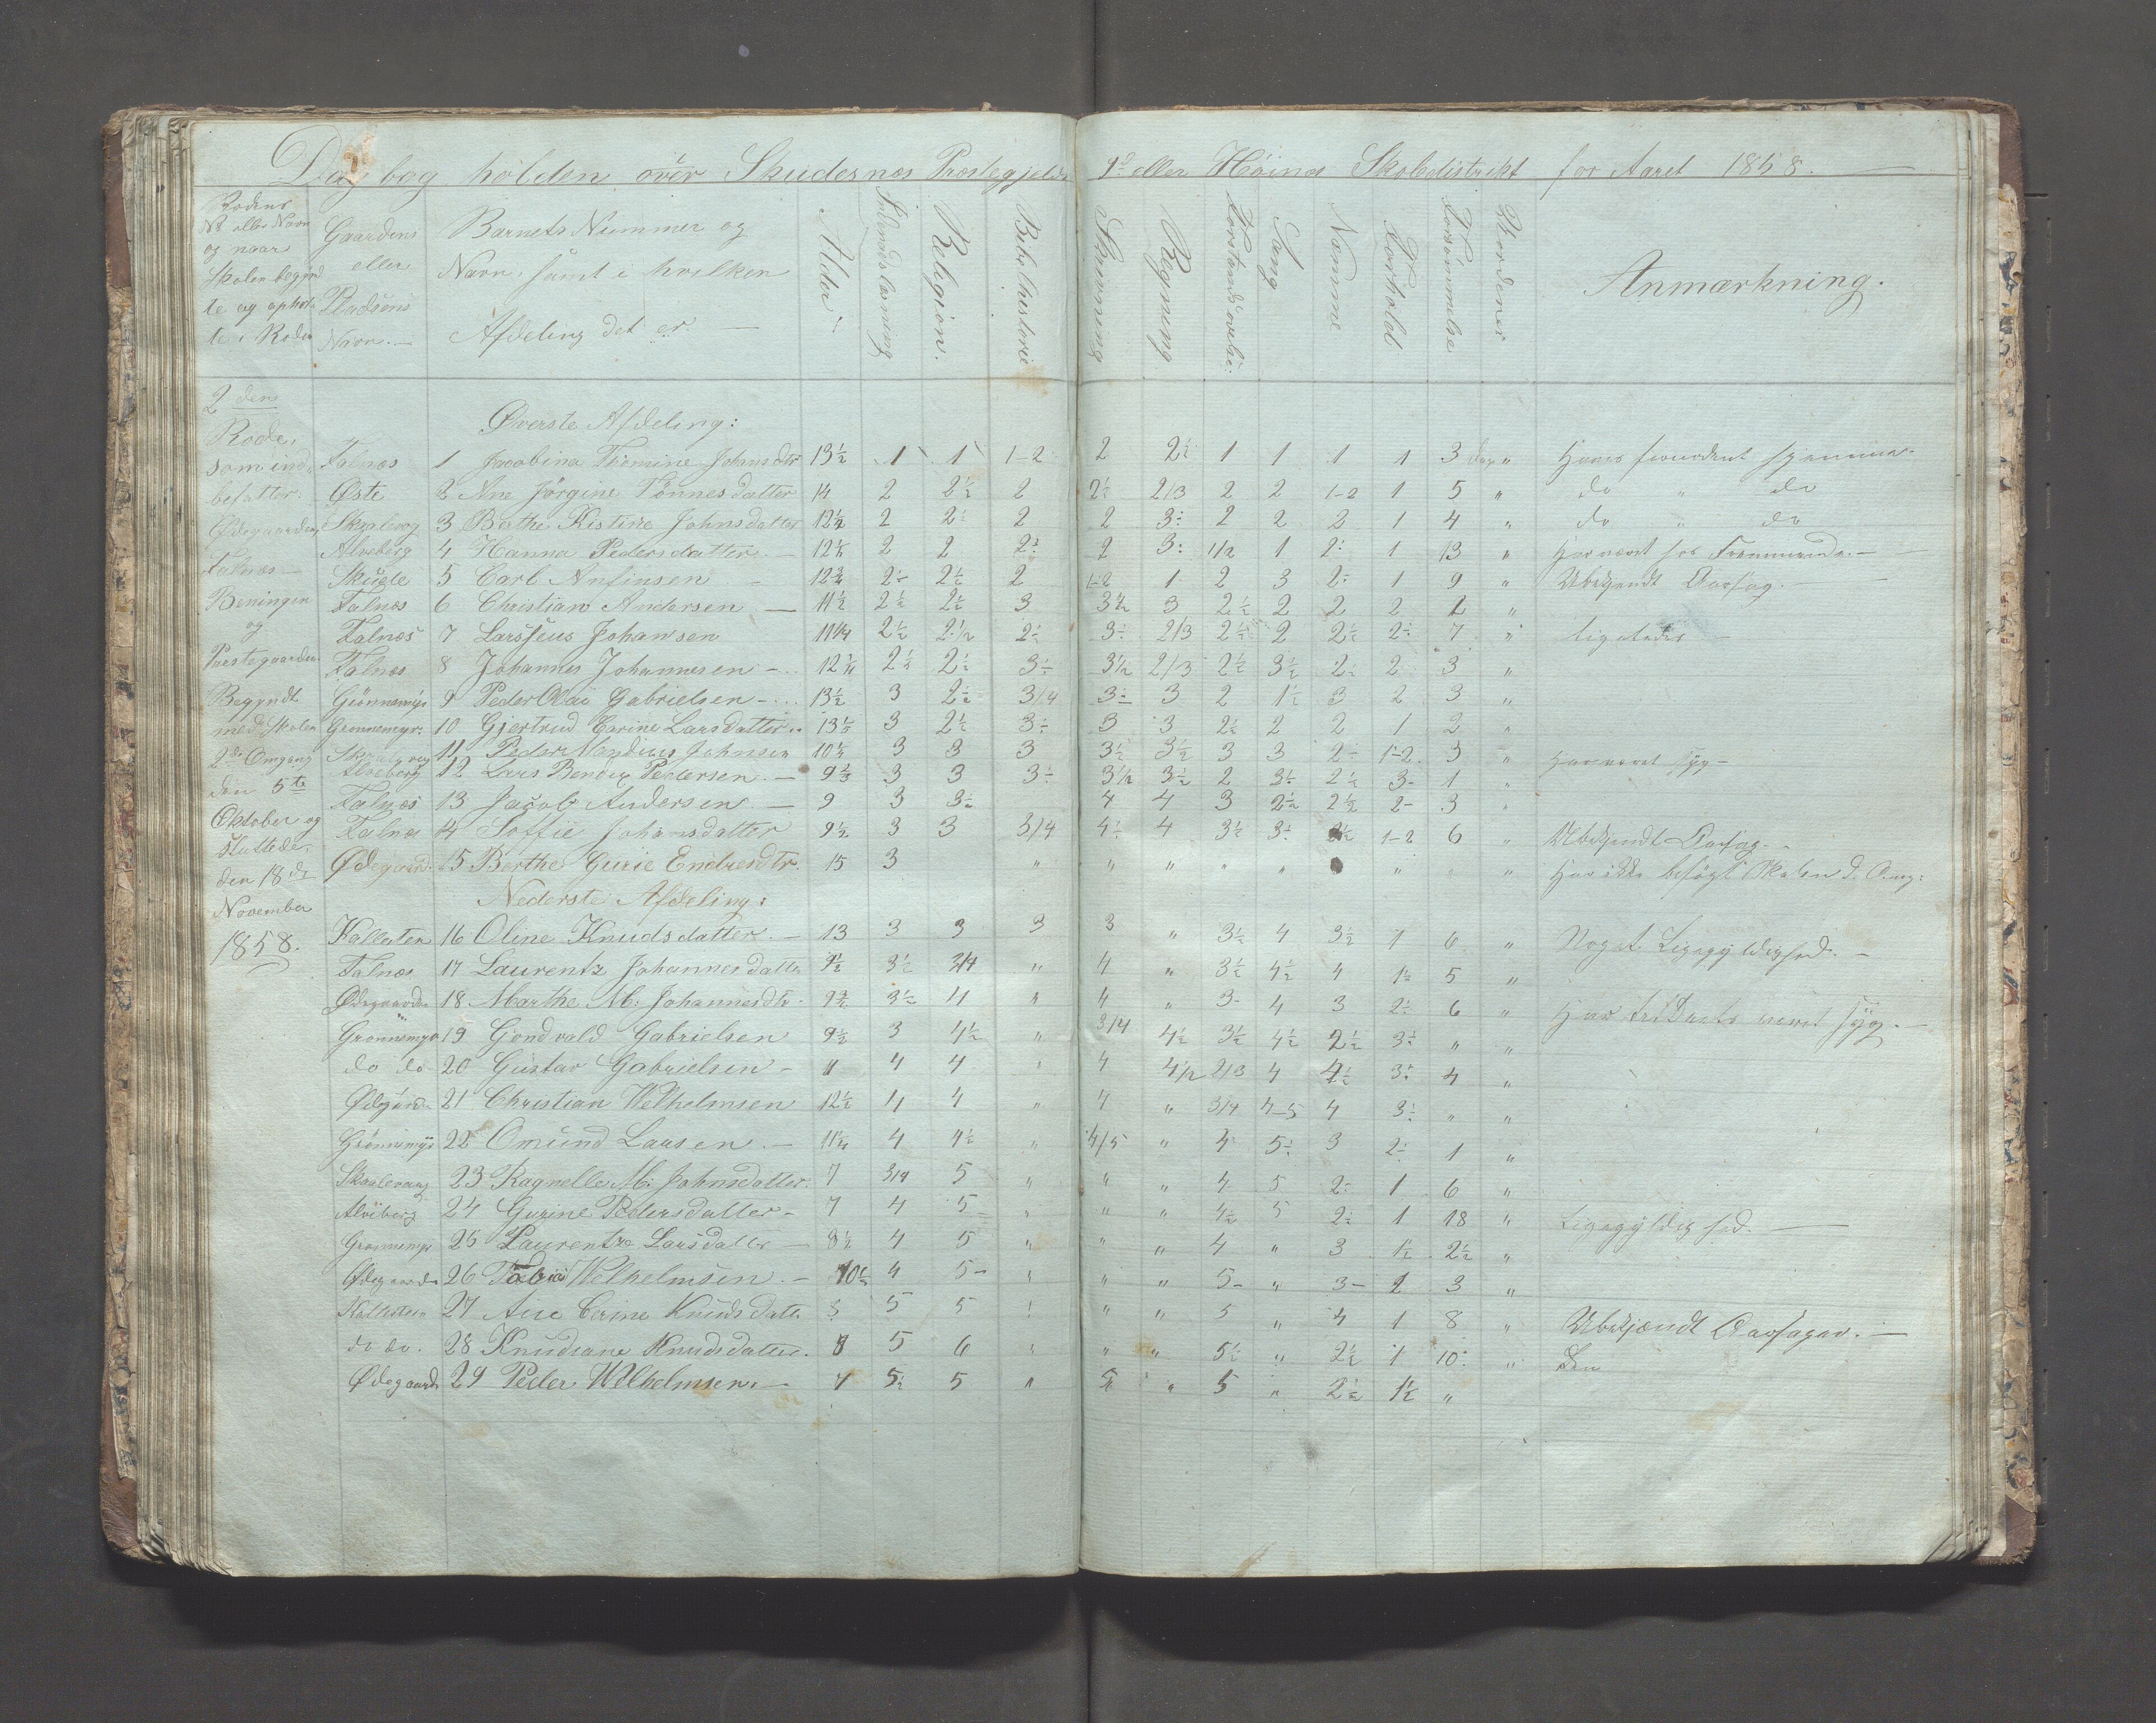 Dagbog holden over Skudesnæs Præstegjelds 1ste eller Høines Skoledistrikt for Aaret 1858.
Rodens No eller Navn og naar Skolen begyndte og opholdte i Roden
Gaardens eller Pladsens Navn.
Barnets Nummer og Navn, samt i hvilken Afdeling det er.
Alder
Indenadslæsning
Religion.
Bibelhistorie
Skrivning
Regning
Forstandsøvelse.
Sang
Nemme
Forhold
Forsømmelse
Anmærkning.
2den Rode, som indbefatter Ødegaarden, Falnæs Beningen og Præstegaarden. Begyndt med Skolen 2den Omgang den 5te Oktober og sluttede den 18de November 1858.
Øverste Afdeling:
Falnæs 1 Jacobina Tomine Johnsdtr 13½ 1 1 1-2 2 2½ 1 1 1 1 3 dage "
Øste 2 Ane Jørgine Tønnesdatter 14 2 2½ 2 2½ 2/3 2 2 1-2 1 5 " do " do
Skaalevog 3 Berthe Kistine Johnsdatter 12½ 2 2½ 2 2 3÷ 2 2 2 1 4 " do " do
Alveberg 4 Hanna Pedersdatter 2 2 2÷ 2 3÷ 1/2 1 2÷ 1 13 " Har været hos Fremmende.
Skugle 5 Carl Anfinsen 12¾ 2÷ 2½ 2 1-2 1 2 3 2÷ 1 9 " Ubekjendt Aarsag.
Falnæs 6 Christian Andersen 11½ 2½ 2½ 3 3½ 3 2½ 2 2 2 2 "
Falnæs 7 Johansen 11¼ 2½ 2½ 2÷ 3÷ 2/3 2½ 2 2½ 2÷ 7 " Ligeledes
Falnæs 8 Johannes Johannesen 2½ 2½ 3÷ 3½ 2/3 2½ 3½ 2÷ 2 3 "
Grønnemyr 9 Peder Olai Gabrielsen 13½ 3 2½ 3/4 3÷ 3 2 1½ 3 2 3 "
Grønnemyr 10 Gjertrud Carine Larsdatter 13½ 3 2½ 3÷ 3 3 2½ 2 2 1 2 "
Skaalevog 11 Peder Nandius Johnsen 10½ 3 3 3 3½ 3½ 3 3 2- 1-2 3 " Har været syg
Alveberg 12 Lars Bendix Pedersen 9½ 3 3 3÷ 3½ 3½ 2 3½ 2½ 3- 1 "
Falnæs 13 Jacob Andersen 9 3 3÷ 4 4 3 2½ 2½ 2- 3 "
Falnæs 14 Soffie Johansdatter 9½ 3 3 3/4 4÷ 4 3½ 3÷ 1-2 6 " Ubekjendt Aarsag.
Ødegaard 15 Berthe Gurie Endresdtr. 15 3 " " " " " " " " Har ikke besøgt Skolen d. Omg:
Nederste Afdeling:
Kallesten 16 Oline Knudsdatter 13 3 3 3 3 " 3½ 4 3½ 1 6 " Noget Ligegyldighed.
Falnæs 17 Laurentz Johannesdatter 9½ 3½ 3/4 " 4 " 3½ 4½ 4 1÷ 5 "
Ødegaarden 18 Marthe M: Johannesdtr 9¾ 3½ 4 " 4 " 3- 4 3 2÷ 6 " Har tildeels været syg.
Grønnemyr 19 Gondvald Gabrielsen 9½ 3 4½ " 3/4 4½ 3½ 4½ 2½ 3÷ " "
do do 20 Gustav Gabrielsen 11 4 4 " 4 4½ 2/3 4 4½ 3÷ 4 "
Ødegaard 21 Christian Welhelmsen 12½ 4 4 " 4 " 3/4 4-5 4 3÷ " "
Grønnemyr 22 Omund Larsen 11½ 4 4½ " 4/5 " 4 5÷ 3 2÷ 1 "
Skaalevaag 23 Ragnelle M: Johnsdatter. 7 3/4 5 " " " 4 5 2÷ 1 6 "
Alveberg 24 Gurine Pedersdatter 7 4 5 " " " 4½ 5 2½ 1 18 " Ligegyldighed.
Grønnemyr 25 Laurentze Larsdatter 8½ 4 5 " " " 4 " 3 1½ 2½ "
Ødegaard 26 Tobias Welhelmsen 10½ 4 5- " " " 5- " 3- 2 3 "
Kallesten 27 Ane Cerine Knudsdatter 8 5 5 " " " 5 " 4 1 8 " Ubekjændt Aarsager.
do do. 28 Knudiane Knudsdatter. 7 5 6 " " " 5½ " 2½ 1 10 "
Ødegaard 29 Peder Welhelmsen 7 5½ 5 " 5 " 5 " 2½ 1½ "